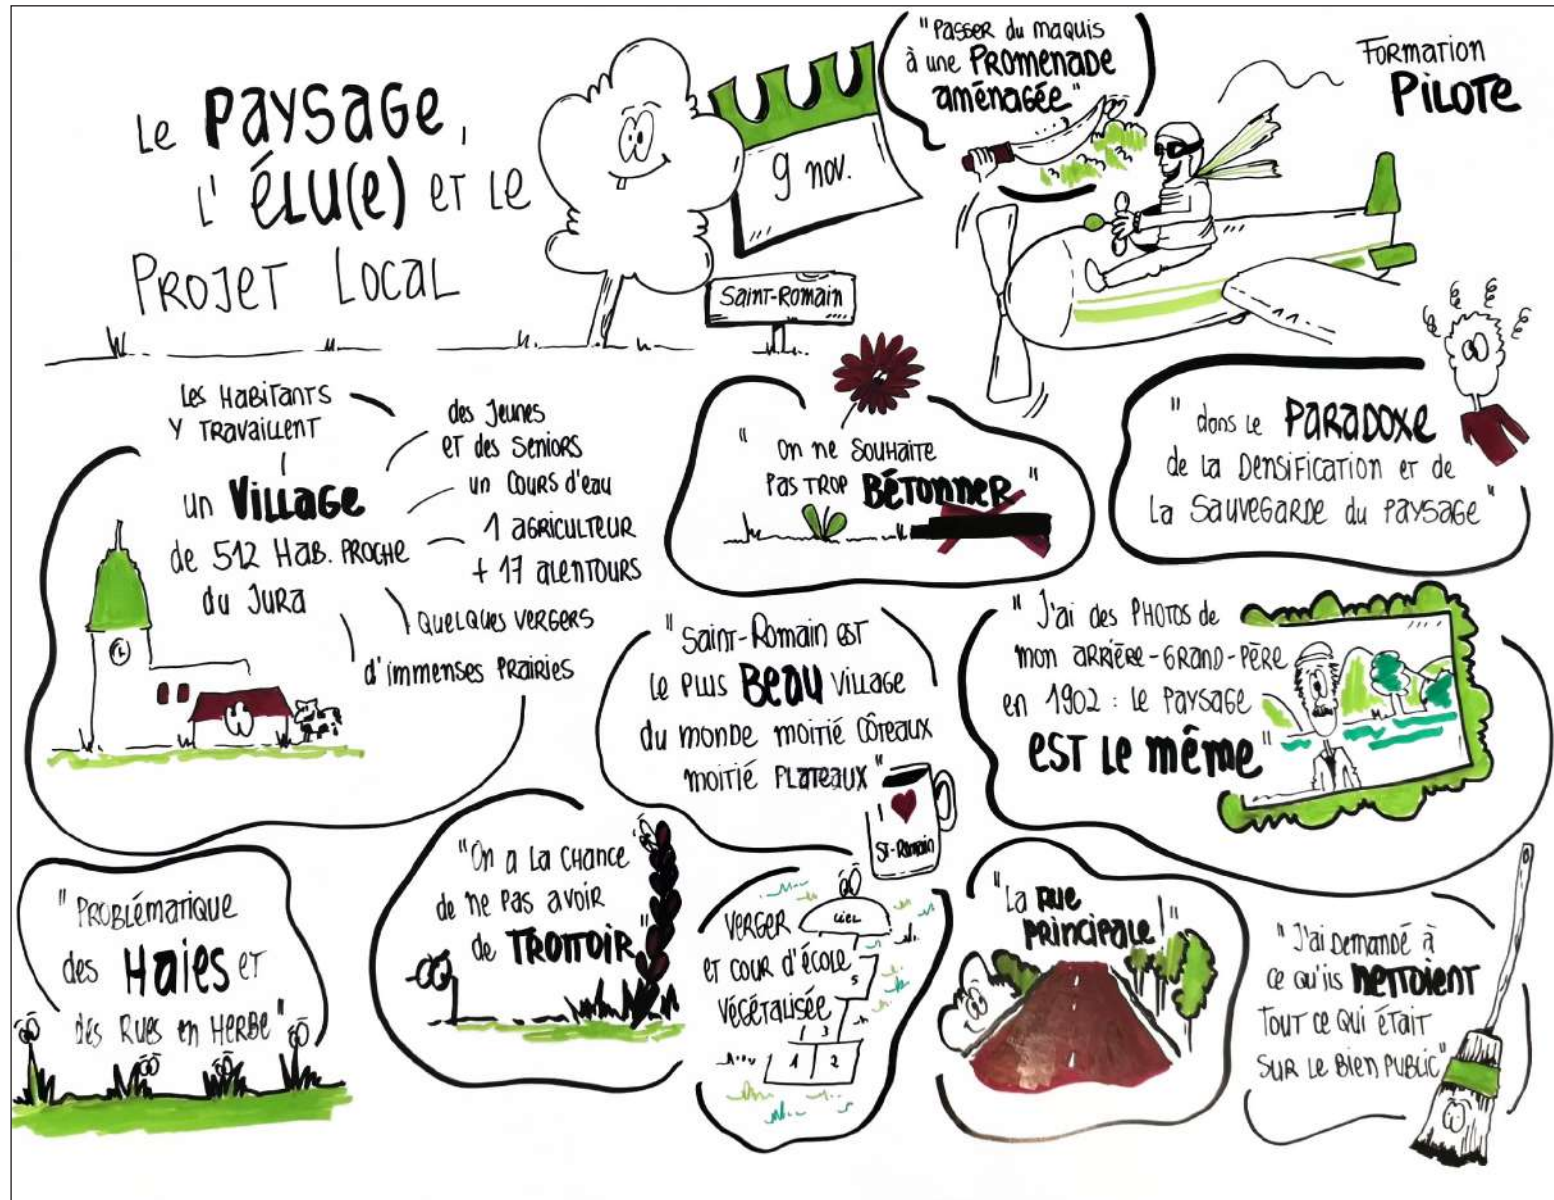 Le PAYSAGE,
L'ÉLU(e) ET LE
PROJET LOCAL
9 nov.
Saint-Romain
"Passer du maquis
à une PROMENADE
aménagée"
Formation
PILOTE
Les Habitants
Y Travaillent
un Village
de 512 Hab. proche
du Jura
des Jeunes
et des Seniors
un Cours d'eau
1 agriculteur
+ 17 alentours
quelques vergers
d'immenses prairies
"On ne souhaite
pas trop BÉTONNER"
"dans le PARADOXE
de la Densification et de
la sauvegarde du paysage"
"Saint-Romain est
le plus BEAU village
du monde moitié côteaux
moitié plateaux"
I
St-Romain
"J'ai des PHOTOS de
mon arrière-grand-père
en 1902 : le paysage
EST LE même"
"Problématique
des Haies et
des Rues en Herbe"
"On a la chance
de ne pas avoir
de TROTTOIR"
Verger
et cour d'école
végétalisée
ciel
5
3
1 2
"La rue
principale!"
"J'ai demandé à
ce qu'ils nettoient
tout ce qui était
sur le bien public"